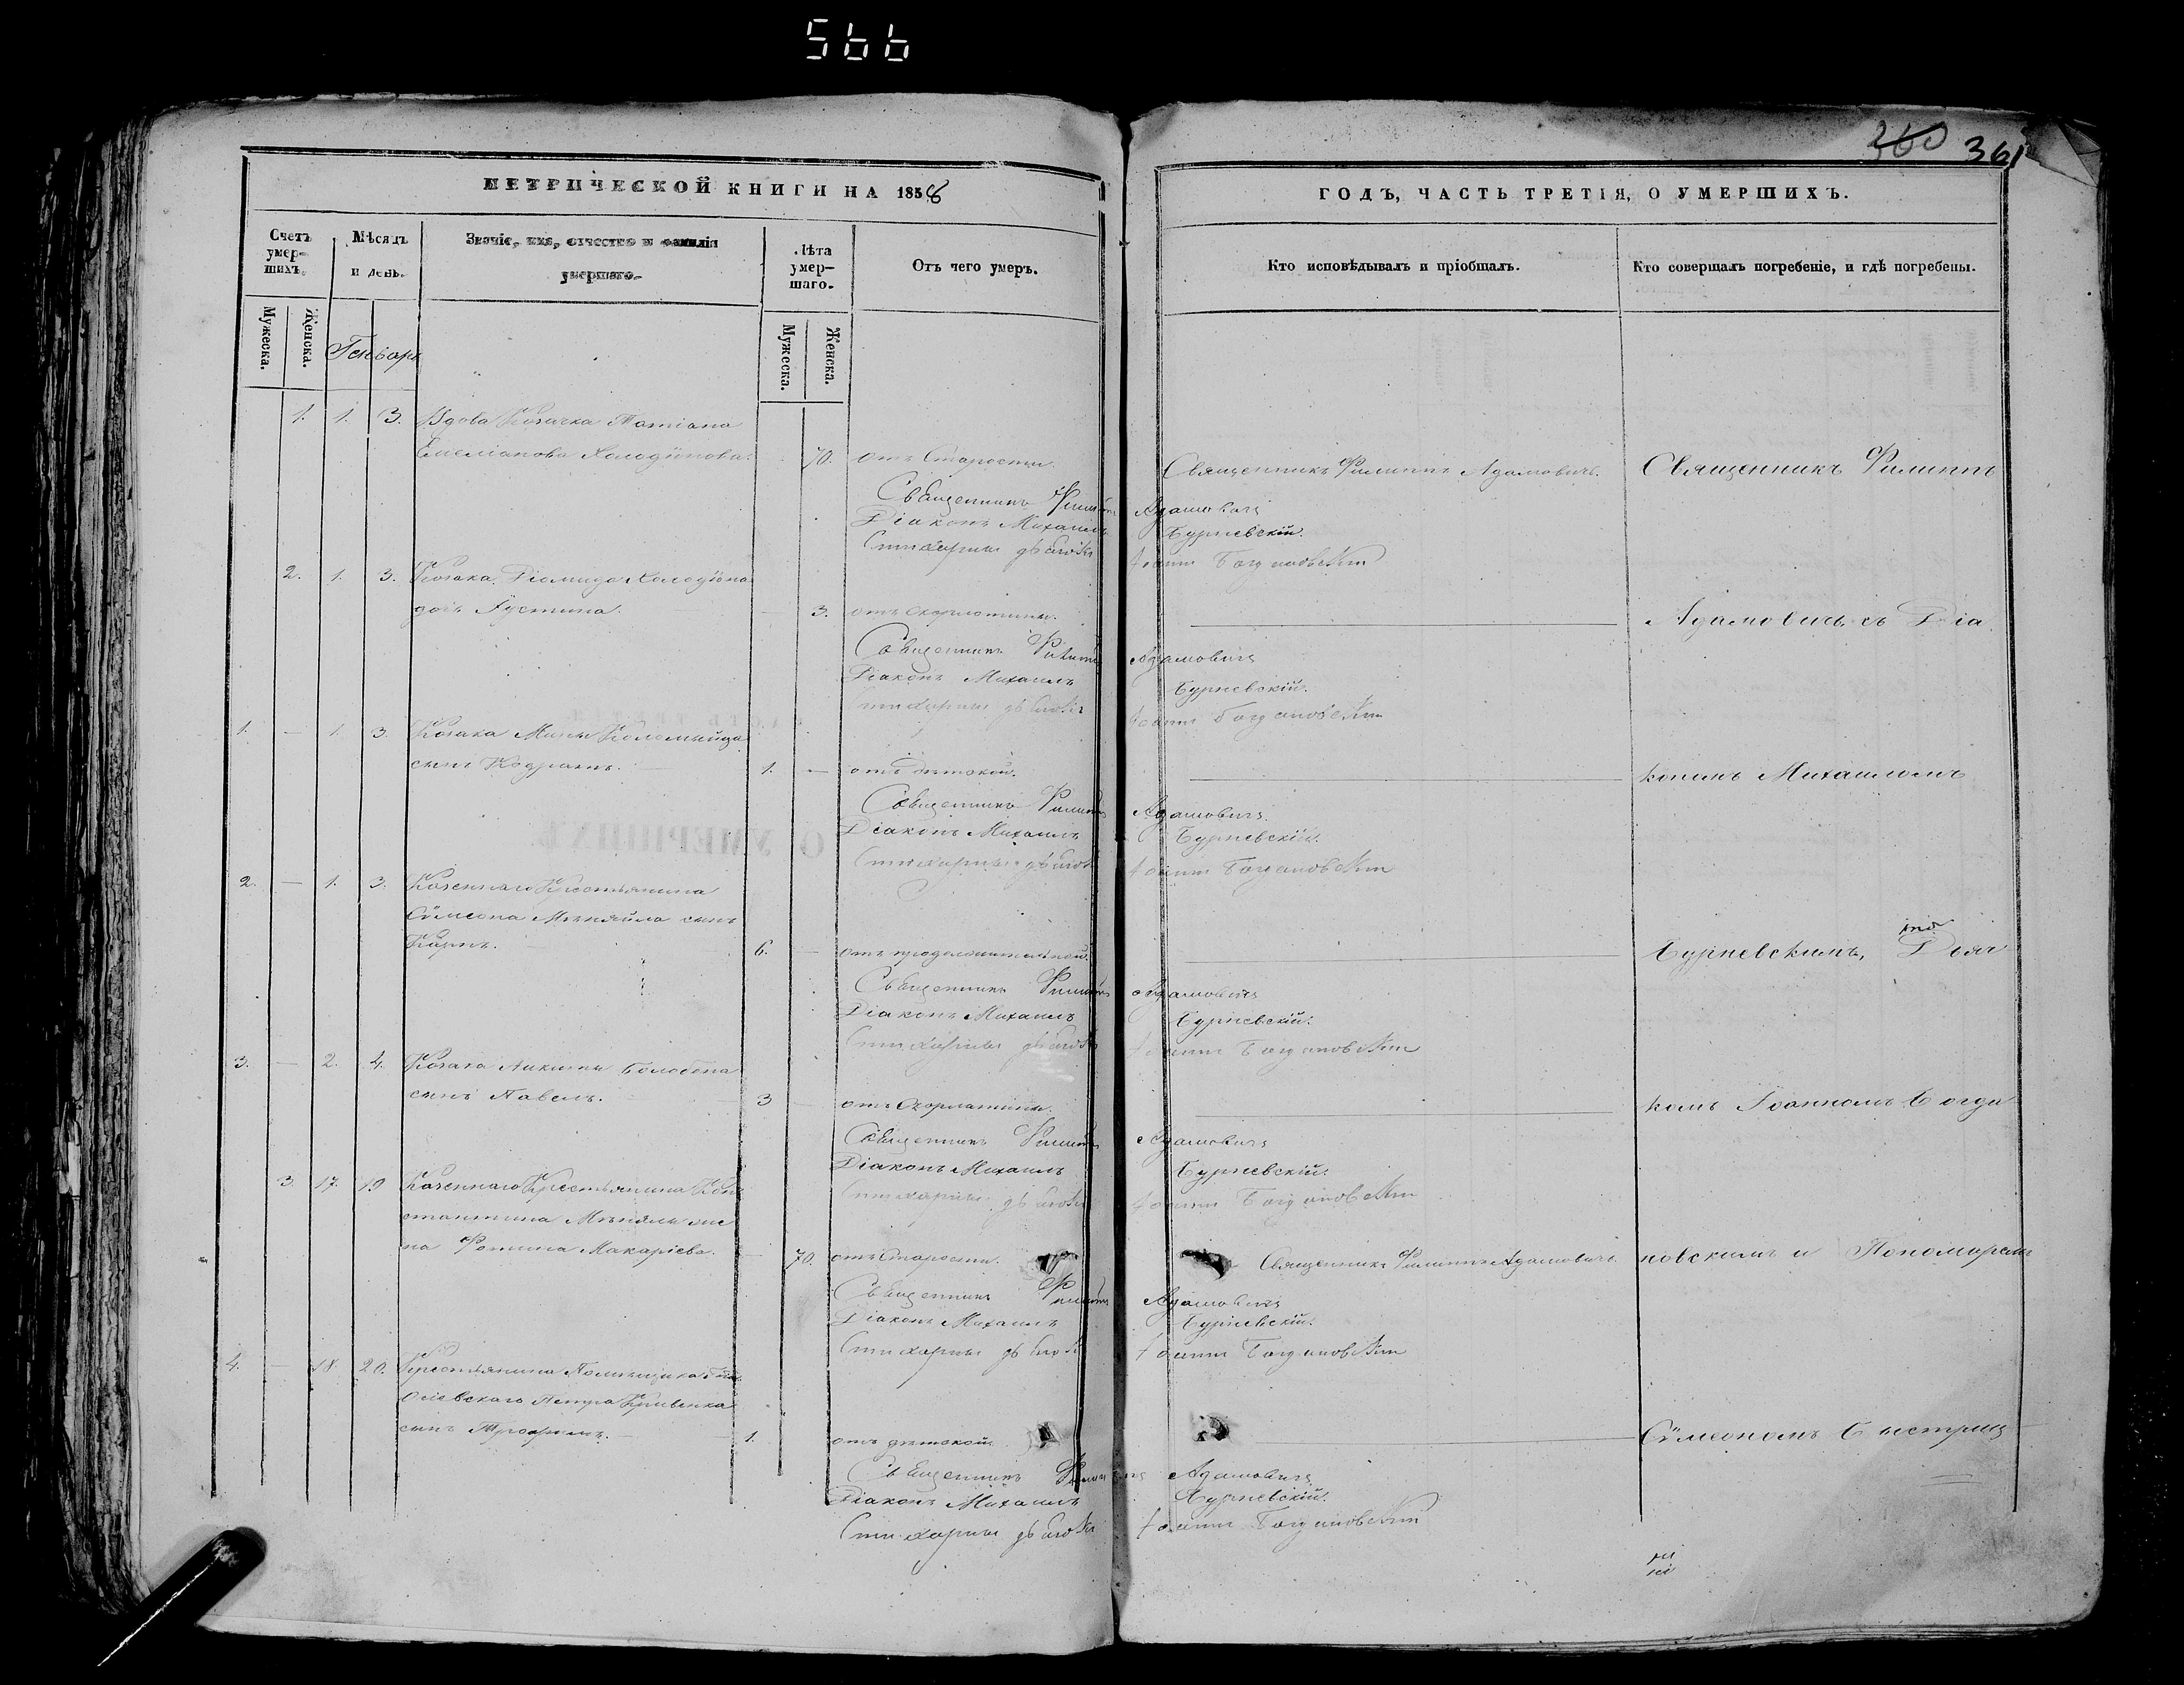 566
360 361
МЕТРИЧЕСКОЙ КНИГИ НА 1858 ГОДЪ, ЧАСТЬ ТРЕТІЯ, О УМЕРШИХЪ.
Счетъ умер-шихъ.
Мѣсяцъ и день.
Званіе, имя, отчество и фамилія умершаго.
Лѣта умер-шаго.
Отъ чего умеръ.
Кто исповѣдывалъ и пріобщалъ.
Кто совершалъ погребеніе, и гдѣ погребены.
Мужеска. Женска. Мужеска. Женска.
Генварь
1. 1. 3. Вдова Козачка Татіана
Емеліанова 70. отъ Старости. Священникъ Филиппъ Адамовичъ. Священникъ Филиппъ
Священникъ Филиппъ Адамовичъ
Діаконъ Михаилъ Бурневскій.
Стихарный дьячокъ Іоаннъ Богдановскій
2. 1. 3. Козака Діомида
дочь Іустина. 3. отъ Скорлатины. Адамовичъ съ Діа
Священникъ Филиппъ Адамовичъ
Діаконъ Михаилъ Бурневскій.
Стихарный дьячокъ Іоаннъ Богдановскій
1. — 1. 3. Козака Коломыйца
сынъ Кодратъ. 1. — отъ дѣтской. кономъ Михаиломъ
Священникъ Филиппъ Адамовичъ.
Діаконъ Михаилъ Бурневскій.
Стихарный дьячокъ Іоаннъ Богдановскій
2. — 1. 3. Казеннаго Крестьянина
Сѵмеона сынъ
Карпъ. 6. — отъ продолжительной. Бурневскимъ, Дьяч
Священникъ Филиппъ Адамовичъ
Діаконъ Михаилъ Бурневскій.
Стихарный дьячокъ Іоаннъ Богдановскій
3. — 2. 4. Козака Никиты
сынъ Павелъ. 3 отъ Скорлатины. комъ Іоанномъ Богда
Священникъ Филиппъ Адамовичъ
Діаконъ Михаилъ Бурневскій.
Стихарный дьячокъ Іоаннъ Богдановскій
3. 17. 19 Казеннаго Крестьянина Кон
стантина же
на Фотина Макаріева. — 70. отъ Старости. Священникъ Филиппъ Адамовичъ. новскимъ и Пономаремъ
Священникъ Филиппъ Адамовичъ
Діаконъ Михаилъ Бурневскій.
Стихарный дьячокъ Іоаннъ Богдановскій
4. — 18. 20. Крестьянина Помѣщика
Петра Кривенка
сынъ Трофимъ. 1. отъ дѣтской. Сѵмеономъ
Священникъ Филиппъ Адамовичъ
Діаконъ Михаилъ Бурневскій.
Стихарный дьячокъ Іоаннъ Богдановскій